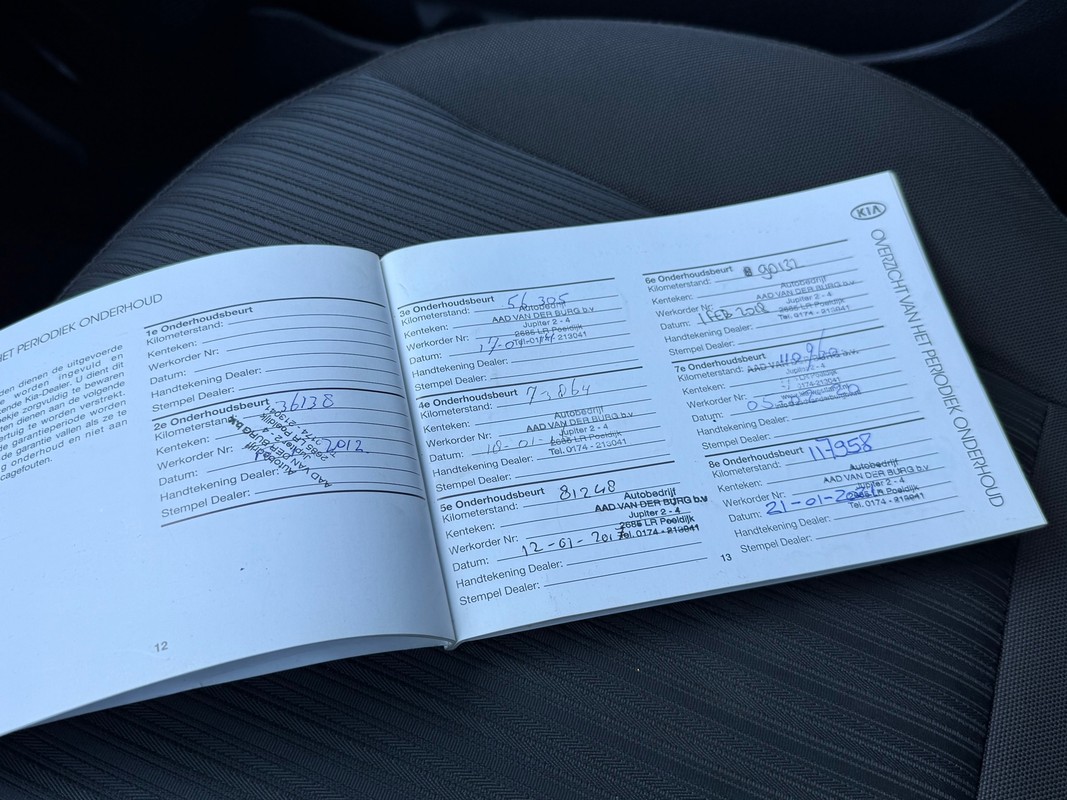 HET PERIODIEK ONDERHOUD
den dienen de uitgevoerde
te worden ingevuld en
ende Kia-Dealer. U dient dit
ekje zorgvuldig te bewaren
ten dienen aan de volgende
ertuig te worden verstrekt.
de garantieperiode worden
de garantie vallen als ze te
g onderhoud en niet aan
cagefouten.
1e Onderhoudsbeurt
Kilometerstand:
Kenteken:
Werkorder Nr:
Datum:
Handtekening Dealer:
Stempel Dealer:
2e Onderhoudsbeurt 36138
Kilometerstand:
Kenteken:
Werkorder Nr:
Datum: 2012
Handtekening Dealer:
Stempel Dealer:
12
3e Onderhoudsbeurt 56305
Kilometerstand:
Autobedrijf
Kenteken: AAD VAN DER BURG b.v
Jupiter 2 - 4
Werkorder Nr: 2685 LR Poeldijk
Datum: Tel. 0174 - 213041
Handtekening Dealer:
Stempel Dealer:
4e Onderhoudsbeurt 73864
Kilometerstand:
Autobedrijf
Kenteken: AAD VAN DER BURG b.v
Jupiter 2 - 4
Werkorder Nr: 2685 LR Poeldijk
Datum: 18-01- Tel. 0174 - 213041
Handtekening Dealer:
Stempel Dealer:
5e Onderhoudsbeurt 81248
Kilometerstand: Autobedrijf
AAD VAN DER BURG b.v
Kenteken: Jupiter 2 - 4
Werkorder Nr: 2685 LR Poeldijk
Datum: 12-01-2017 Tel. 0174 - 213041
Handtekening Dealer:
Stempel Dealer:
KIA
OVERZICHT VAN HET PERIODIEK ONDERHOUD
6e Onderhoudsbeurt 90132
Kilometerstand: Autobedrijf
Kenteken: AAD VAN DER BURG b.v
Jupiter 2 - 4
Werkorder Nr: 2685 LR Poeldijk
Datum: 1 FEB 2018 Tel. 0174 - 213041
Handtekening Dealer:
Stempel Dealer:
7e Onderhoudsbeurt
Kilometerstand: AAD VAN
Kenteken: Jupiter 2 - 4
Werkorder Nr: 0174-213041
Datum:
Handtekening Dealer:
Stempel Dealer:
8e Onderhoudsbeurt 117958
Kilometerstand: Autobedrijf
Kenteken: AAD VAN DER BURG b.v
Jupiter 2 - 4
Werkorder Nr: 2685 LR Poeldijk
Datum: 21-01- Tel. 0174 - 213041
Handtekening Dealer:
Stempel Dealer:
13